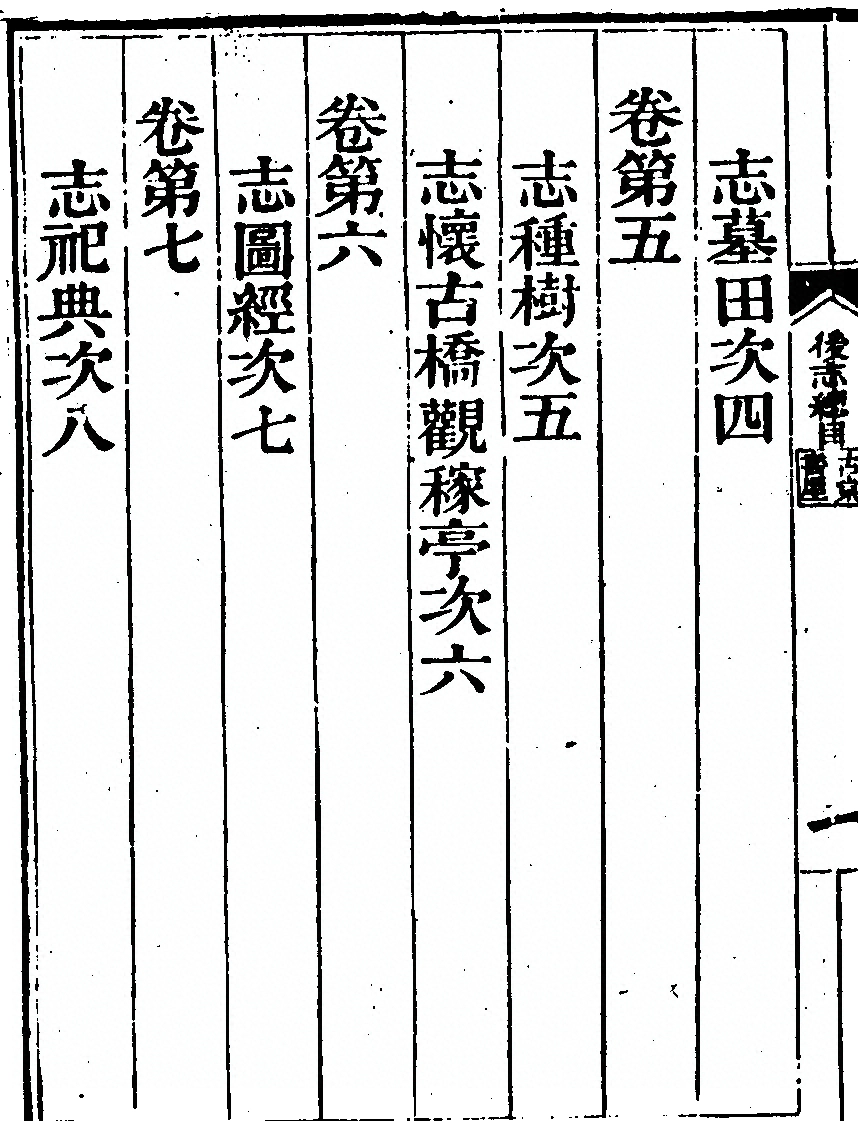 後志總目
志墓田次四
卷第五
志種樹次五
志懷古橋觀稼亭次六
卷第六
志圖經次七
卷第七
志祀典次八